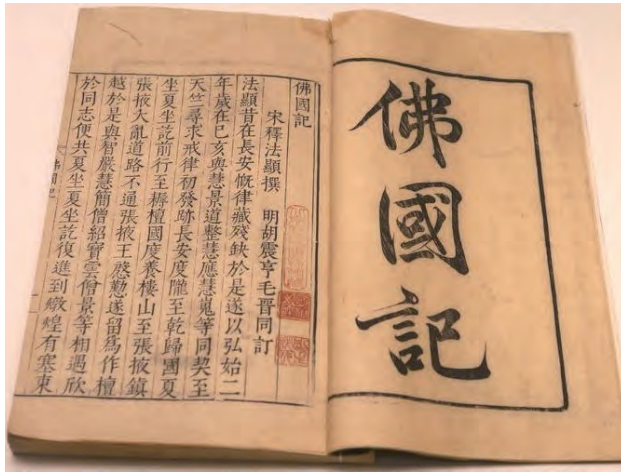 佛國記
佛國記
宋釋法顯撰 明胡震亨毛晉同訂
法顯昔在長安慨律藏殘缺於是遂以弘始二
年歲在已亥與慧景道整慧應慧嵬等同契至
天竺尋求戒律初發跡長安度隴至乾歸國夏
坐夏坐訖前行至耨檀國度養樓山至張掖鎮
張掖大亂道路不通張掖王慇懃遂留爲作檀
越於是與智嚴慧簡僧紹寶雲僧景等相遇欣
於同志便共夏坐夏坐訖復進到燉煌有塞東
佛國記